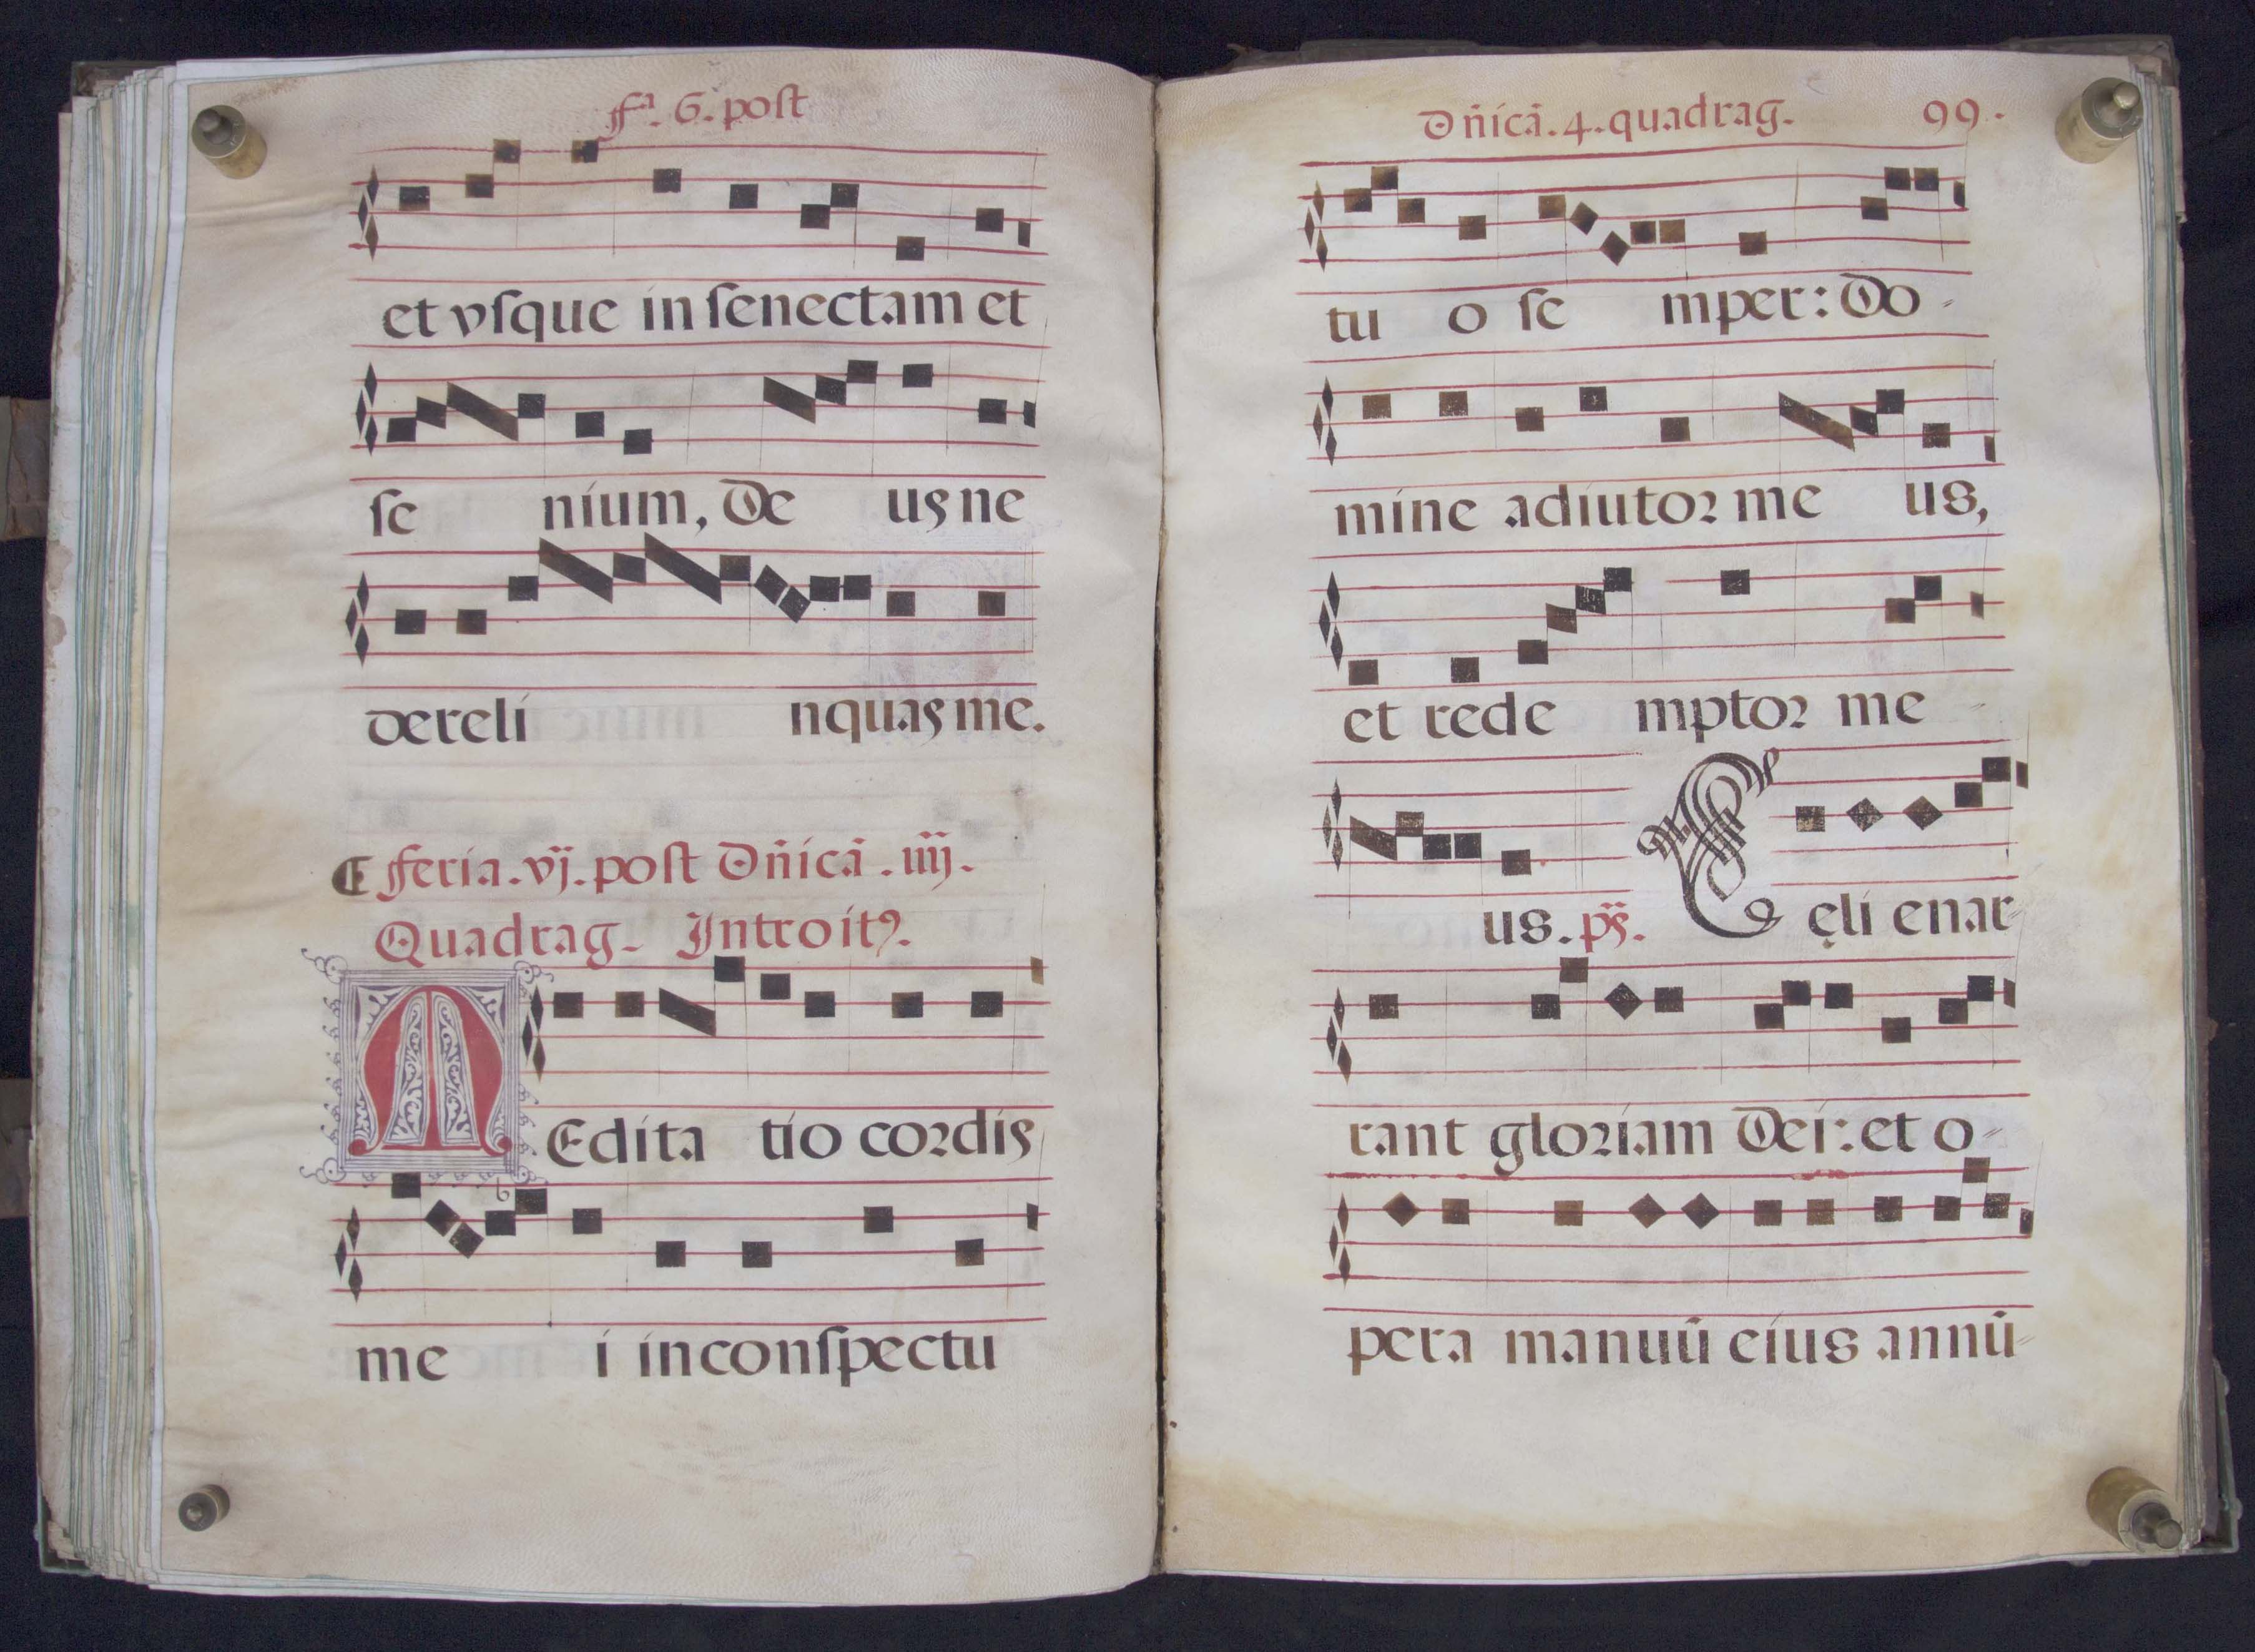 fª. 6. post
et vſque in ſenectam et
ſe nium, De us ne
dereli nquas me.
feria. vj. poſt Dñicã. iiij.
Quadrag. Introitꝰ.
MEdita tio cordis
me i in conſpectu
Dñicã. 4. quadrag. 99.
tu o ſe mper: Do-
mine adiutoꝛ me us,
et rede mptoꝛ me
us. pš. Cęli enar-
rant gloꝛiam Dei: et o-
pera manuū eius annū-